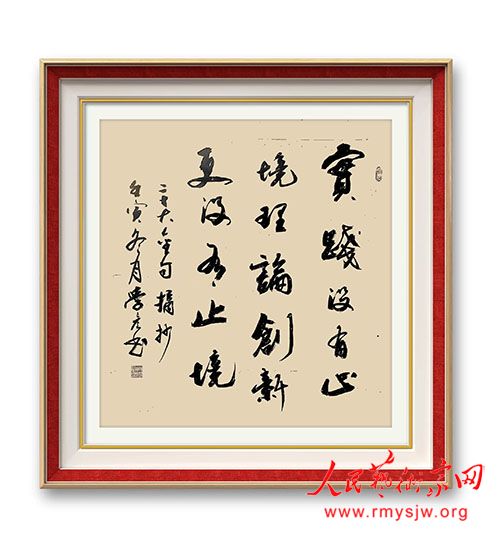 實踐没有止
境理論創新
更没有止境
二十大金句摘抄
壬寅冬月學书
人民藝術家网
www.rmysjw.org